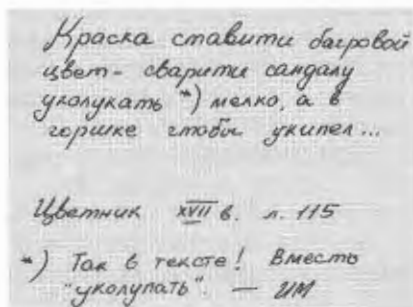 Краска ставити багровой
цвет - сварити сандалу
уколукать *) мелко, а в
горшке чтобы укипел...
Цветник XVII в. л. 115
*) Так в тексте! Вместь
"уколупать". — ИМ